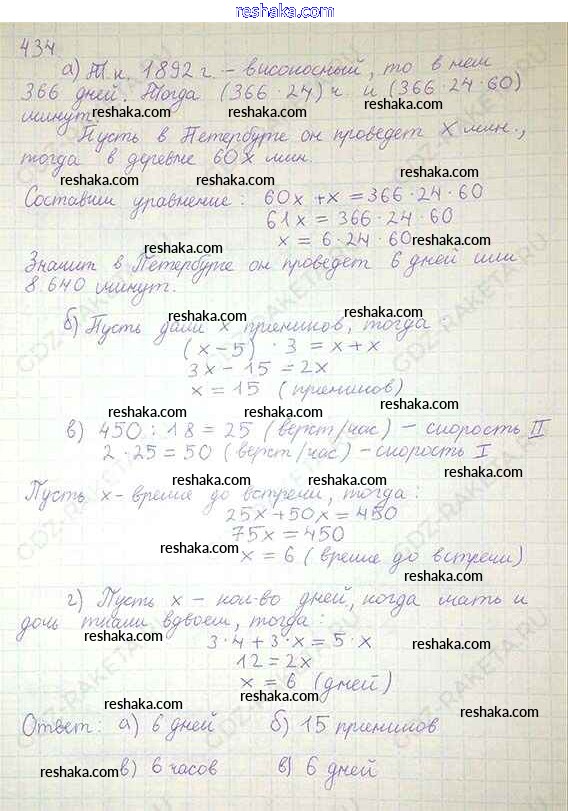 www.reshaka.com
434
а) Т.к. 1892 г. – високосный, то в нем
366 дней. Тогда (366·24) ч и (366·24·60)
минут.
reshaka.com reshaka.com
Пусть в Петербурге он проведет х мин.,
тогда в деревне 60х мин.
reshaka.com reshaka.com
Составим уравнение: 60х + х = 366·24·60
61х = 366·24·60
х = 6·24·60
reshaka.com reshaka.com
Значит в Петербурге он проведет 6 дней или
8 640 минут.
reshaka.com reshaka.com
б) Пусть дали х пряников, тогда:
(х-5) · 3 = х+х
3х - 15 = 2х
reshaka.com reshaka.com
х = 15 (пряников)
reshaka.com reshaka.com
в) 450 : 18 = 25 (верст/час) – скорость II
2·25 = 50 (верст/час) – скорость I
reshaka.com reshaka.com
Пусть х - время до встречи, тогда:
25х + 50х = 450
reshaka.com reshaka.com
75х = 450
х = 6 (время до встречи)
reshaka.com reshaka.com
г) Пусть х – кол-во дней, когда мать и
дочь ткали вдвоем, тогда:
reshaka.com reshaka.com
3·4 + 3·х = 5·х
12 = 2х
х = 6 (дней)
reshaka.com reshaka.com
Ответ: а) 6 дней б) 15 пряников
reshaka.com reshaka.com
в) 6 часов в) 6 дней
reshaka.com reshaka.com
GDZ-RAKETA.RU